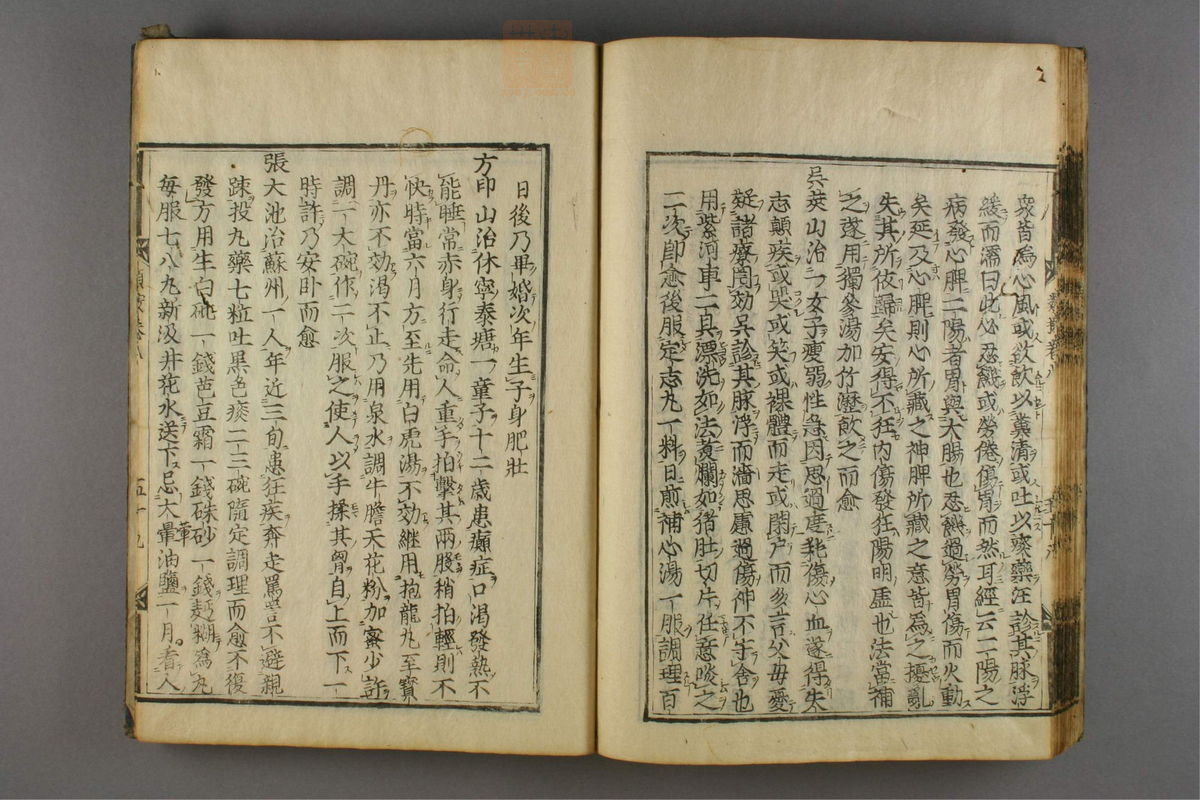 衆皆為心風或欲飲以糞清或吐以痰藥汪診其脉浮
緩而濡曰此心忍饑或勞倦傷胃而然耳經云二陽之
病發心脾二陽者胃與大腸也忍饑過勞胃傷而火動
矣延及心脾則心所藏之神脾所藏之意皆為之擾亂
失其所依歸矣安得不狂内傷發狂陽明虚也法當補
之遂用獨參湯加竹瀝飲之而愈
吳茭山治一女子瘦弱性急因思過度耗傷心血遂得失
志顛疾或哭或笑或裸體而走或閉户而多言父母憂
疑諸療罔効吳診其脉浮而濇思慮過傷神不守舍也
用紫河車二具漂洗如法煑爛如猪肚切片任意啖之
二次卽愈後服定志丸一料日煎補心湯一服調理百
日後乃畢婚次年生子身肥壯
方印山治休寧泰塘一童子十二歲患癲症口渴發熱不
能睡常赤身行走命人重手拍擊其兩股稍拍輕則不
快時當六月方至先用白虎湯不効継用抱龍丸至寳
丹亦不効渴不止乃用泉水調牛膽天花粉加蜜少許
調一大碗作一二次服之使人以手揉其胷自上而下一
時許乃安卧而愈
張大池治蘇州一人年近三旬患狂疾奔走罵詈不避親
踈投九藥七粒吐黒色痰二三碗隨定調理而愈不復
發方用生白砒一錢芭豆霜一錢硃砂一錢麵糊為丸
每服七八九新汲井花水送下忌大葷油鹽一月看人
五十九